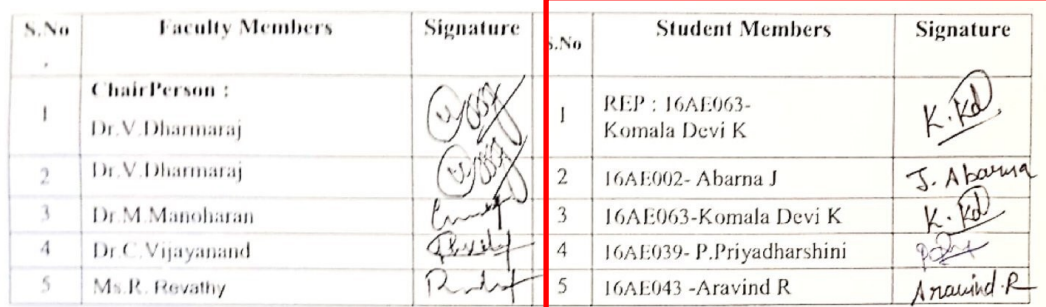 S.No Faculty Members Signature S.No Student Members Signature
.
1 ChairPerson : 1 REP : 16AE063-
Dr.V.Dharmaraj Komala Devi K K.Kd
2 Dr.V.Dharmaraj 2 16AE002- Abarna J J. Abarna
3 Dr.M.Manoharan 3 16AE063-Komala Devi K K.Kd
4 Dr.C.Vijayanand 4 16AE039- P.Priyadharshini
5 Ms.R. Revathy 5 16AE043 -Aravind R Aravind.R